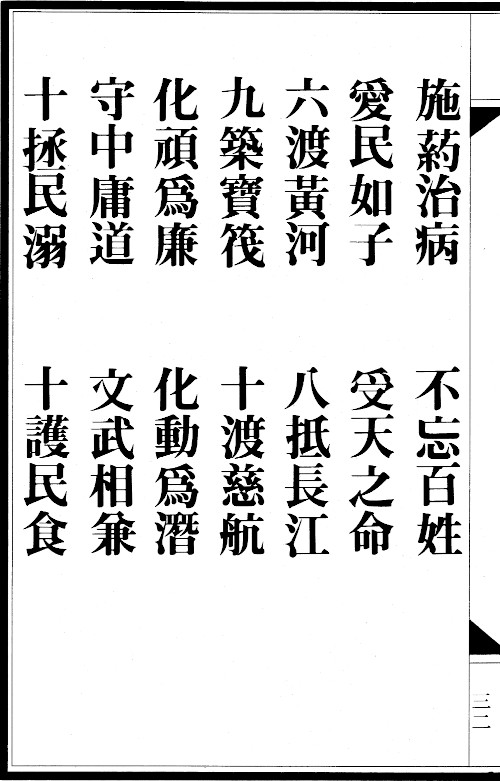 施葯治病 不忘百姓
愛民如子 受天之命
六渡黃河 八抵長江
九築寶筏 十渡慈航
化頑爲廉 化動爲潛
守中庸道 文武相兼
十拯民溺 十護民食
三二